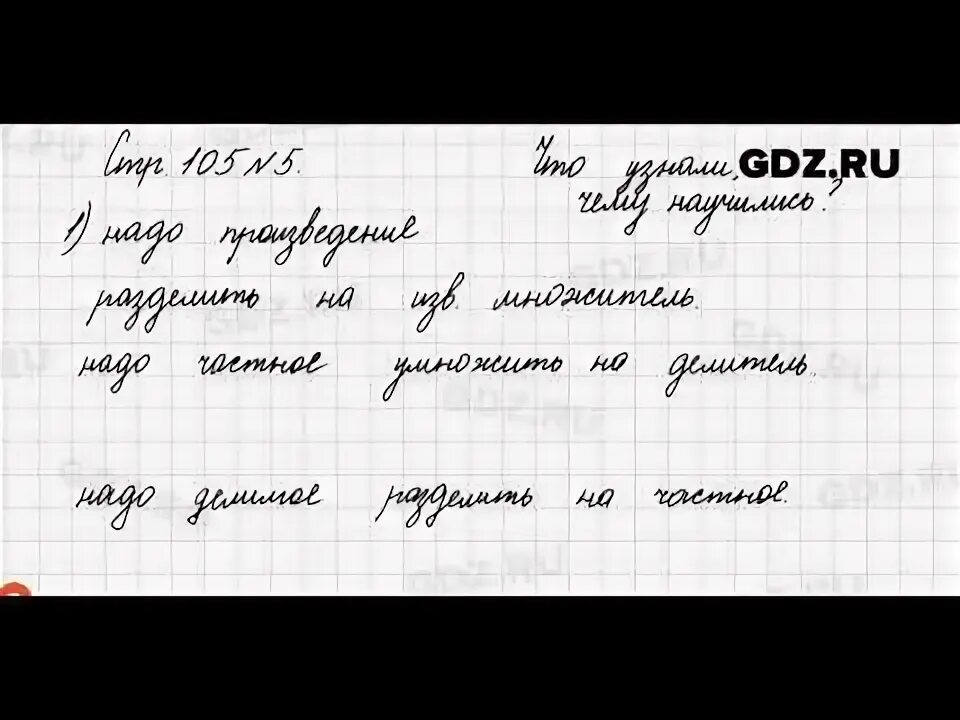 Стр. 105 №5.
Что узнали,
чему научились?
GDZ.RU
1) надо произведение
разделить на изв. множитель.
надо частное умножить на делитель.
надо делимое разделить на частное.